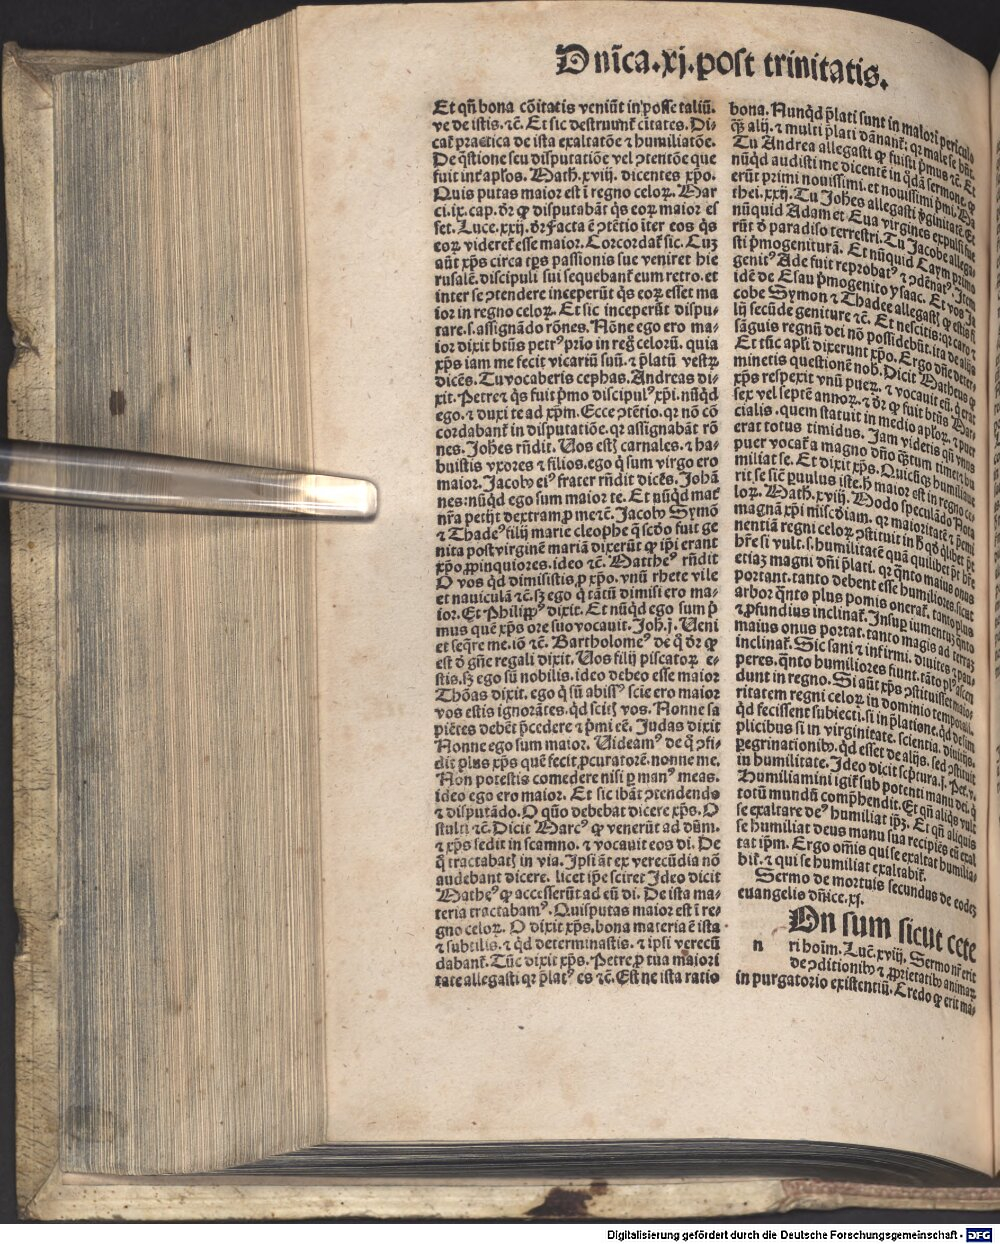 Dnīca.xj.post trinitatis.
Et qñ bona cōitatis veniūt in posse taliū.
ve de istis.⁊c̄. Et sic destruunt̄ citates. Di-
cat̄ practica de ista exaltatōe ⁊ humiliatōe.
De q̄stione seu disputatiōe vel ꝯtentōe que
fuit int̄ apl̓os. Math.xviij. dicentes xp̄o.
Quis putas maior est ī regno celoꝝ. Mar
ci.ix.cap. dr̄ ꝙ disputabāt q̄s eoꝝ maior es
set. Luce.xxij. dr̄ facta ē ꝯtētio iter eos q̄s
eoꝝ videret̄ esse maior. Corcordat̄ sic. Cuꝫ
aūt xp̄s circa tp̄s passionis sue veniret hie
rusalē. discipuli sui sequebant̄ eum retro. et
inter se ꝯtendere inceperūt q̄s eoꝝ esset ma
ior in regno celoꝝ. Et sic inceperūt dispu-
tare.s.assignādo rōnes. Nōne ego ero ma-
ior dixit btūs petrꝰ prio in reg̃ celorū. quia
xp̄s iam me fecit vicariū suū. ⁊ p̄latū vestꝝ
dicēs. Tu vocaberis cephas. Andreas di-
xit. Petre ⁊ q̄s fuit p̄mo discipulꝰ xp̄i. nūq̄d
ego. ⁊ duxi te ad xp̄m. Ecce ꝯtētio. qꝛ nō cō
cordabant̄ in disputatiōe. qꝛ assignabāt rō
nes. Joh̄es rn̄dit. Uos estꝭ carnales. ⁊ ha-
buistis vxores ⁊ filios. ego q̄ sum virgo ero
maior. Jacobꝰ eiꝰ frater rn̄dit dicēs. Johā
nes: nūq̄d ego sum maior te. Et nūq̄d mat̄
nr̄a petijt dextram ꝓ me ⁊c̄. Jacobꝰ Symō
⁊ Thadeꝰ filij marie cleophe q̄ scd̓o fuit ge
nita post virginē mariā dixerūt ꝙ ip̄i erant
xp̄o ꝓpinquiores. ideo ⁊c̄. Mattheꝰ rn̄dit
O vos q̄d dimisistis ꝓ xp̄o. vnū rhete vile
et nauiculā ⁊c̄. sꝫ ego q̄ tātū dimisi ero ma-
ior. Et Philippꝰ dixit. Et nūq̄d ego sum p̄
mus quē xp̄s ore suo vocauit. Joh.j. Ueni
et seq̄re me. iō ⁊c̄. Bartholomeꝰ de q̄ dr̄ ꝙ
est d̓ gn̄e regali dixit. Uos filij piscatoꝝ e-
stis. sꝫ ego sū nobilis. ideo debeo esse maior
Thōas dixit. ego q̄ sū abissꝰ scie ero maior
vos estis ignorātes. q̄d scitꝭ vos. Nonne sa
piētes debēt p̄cedere ⁊ p̄mi eē. Judas dixit
Nonne ego sum maior. Uideamꝰ de q̄ ꝯfi-
dit plus xp̄s quē fecit ꝓcuratorē. nonne me.
Non potestis comedere nisi ꝑ manꝰ meas.
ideo ego ero maior. Et sic ibāt ꝯtendendo
⁊ disputādo. O quō debebat dicere xp̄s. O
stulti ⁊c̄. Dicit Marcꝰ ꝙ venerūt ad dūm.
⁊ xp̄s sedit in scamno. ⁊ vocauit eos di. De
q̄ tractabatꝭ in via. Ipsi āt ex verecūdia nō
audebant dicere. licet ip̄e sciret Ideo dicit
Matheꝰ ꝙ accesserūt ad eū di. De ista ma-
teria tractabamꝰ. Quis putas maior est ī re-
gno celoꝝ. O dixit xp̄s. bona materia ē ista
⁊ subtilis. ⁊ q̄d determinastis. ⁊ ipsi verecū
dabant̄. Tūc dixit xp̄s. Petre ꝓ tua maiori
tate allegasti qꝛ p̄latꝰ es ⁊c̄. Est ne ista ratio
bona. Nunq̄d p̄lati sunt in maiori periculo
q̄ꝫ alij. ⁊ multi p̄lati dānant̄: qꝛ male se hn̄t.
Tu Andrea allegasti ꝙ fuisti p̄mus ⁊c̄. Et
nūq̄d audisti me dicentē in q̄dā sermone. ꝙ
erūt primi nouissimi. et nouissimi p̄mi. Ma
thei.xxij. Tu Joh̄es allegasti ꝟginitatē. Et
nūquid Adam et Eua virgines expulsi fue
rūt d̓ paradiso terrestri. Tu Jacobe allega-
sti p̄mogeniturā. Et nūquid Caym primo
genitꝰ Ade fuit reprobatꝰ ⁊ ꝯdēnatꝰ. Item
idē de Esau p̄mogenito ysaac. Et vos Ja
cobe Symon ⁊ Thadee allegastꝭ ꝙ estis fi
lij secūde geniture ⁊c̄. Et nescitis: qꝛ caro ⁊
sāguis regnū dei nō possidebūt. ita de alijs
Et tūc apl̓i dixerunt xp̄o. Ergo dn̄e deter-
minetis questionē nob̄. Dicit Matheus ꝙ
xp̄s respexit vnū pueꝝ. ⁊ vocauit eū. q̄ erat
sex vel septē annoꝝ. ⁊ dr̄ ꝙ fuit btūs Mar-
cialis. quem statuit in medio apl̓oꝝ. ⁊ puer
erat totus timidus. Jam videtis qn̄ vnus
puer vocat̄ a magno dn̄o q̄ꝫtum timet ⁊ hu
miliat se. Et dixit xp̄s. Quicūqꝫ humiliaue
rit se sic̄ ꝑuulus iste. h̄ maior est in regno ce-
loꝝ. Math.xviij. Modo speculādo Nota
magnā xp̄i mīscd̓iam. qꝛ maioritatē ⁊ p̄emi
nentiā regni celoꝝ ꝯstituit in h̄ qd̓ q̄libet p̄t
hr̄e si vult.s.humilitatē quā quilibet p̄t hr̄e
etiaꝫ magni dn̄i p̄lati. qꝛ q̄nto maius onus
portant. tanto debent esse humiliores. sicut
arbor q̄nto plus pomis onerat̄. tanto plus
⁊ ꝓfundius inclinat̄. Insuꝑ iumentuꝫ q̄nto
maius onus portat. tanto magis ad terraꝫ
inclinat̄. Sic sani ⁊ infirmi. diuites ⁊ pau-
peres. q̄nto humiliores fiunt. tāto plꝰ ascen
dunt in regno. Si aūt xp̄s ꝯstituisset maio-
ritatem regni celoꝝ in dominio temporali.
q̄d fecissent subiecti. si in p̄latione. q̄d de sim
plicibus si in virginitate. scientia. diuitijs.
ꝑegrinationibꝰ. q̄d esset de alijs. sed ꝯstituit
in humilitate. Ideo dicit sc̄ptura.j. Pet.v.
Humiliamini igit̄ sub potenti manu dei. q̄
totū mundū comp̄hendit. Et qn̄ aliq̄s vult
se exaltare deꝰ humiliat ip̄ꝫ. Et qn̄ aliquis
se humiliat deus manu sua recipiēs eū exal
tat ip̄m. Ergo om̄is qui se exaltat humilia-
bit̄. ⁊ qui se humiliat exaltabit̄.
Sermo de mortuis secundus de eodeꝫ
euangelio dn̄ice.xj.
On sum sicut cete
n ri hoīm. Luc̄.xviij. Sermo nr̄ erit
de ꝯditionibꝰ ⁊ ꝓprietatibꝰ animaꝝ
in purgatorio existentiū. Credo ꝙ erit ma-
Digitalisierung gefördert durch die Deutsche Forschungsgemeinschaft - DFG